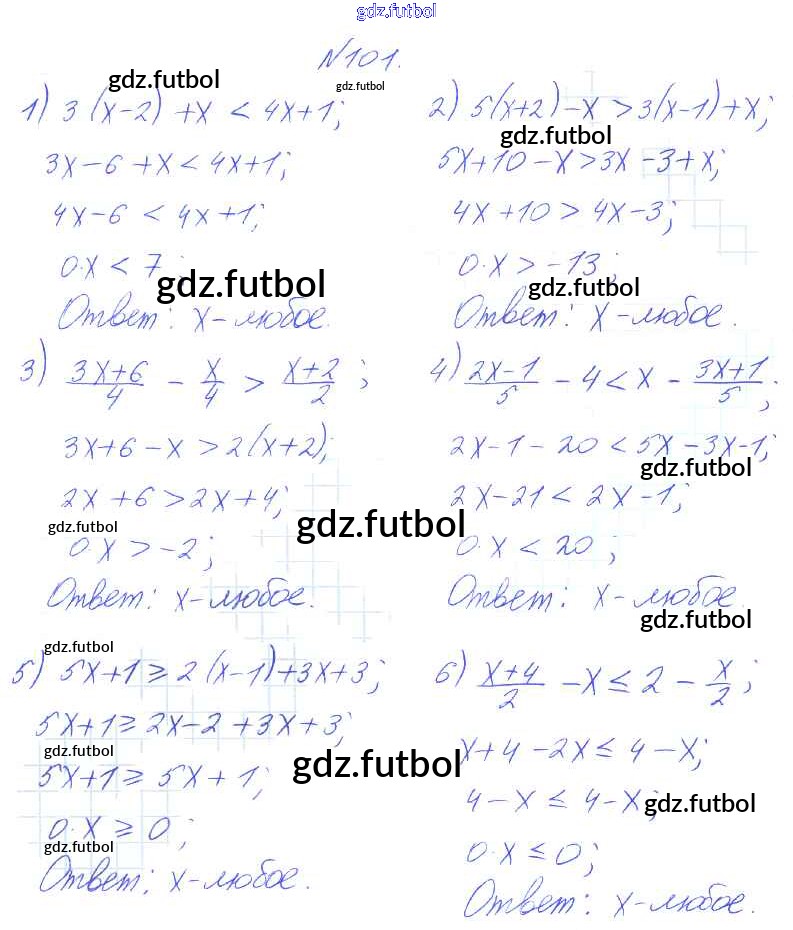 gdz.futbol
№101.
gdz.futbol
gdz.futbol
1) 3(x-2) + x < 4x+1;
3x-6+x < 4x+1;
4x-6 < 4x+1;
0·x < 7;
gdz.futbol
Ответ: x-любое.
2) 5(x+2)-x > 3(x-1)+x;
gdz.futbol
5x+10-x > 3x-3+x;
4x+10 > 4x-3;
0·x > -13;
gdz.futbol
Ответ: x-любое.
3) (3x+6)/4 - x/4 > (x+2)/2;
3x+6-x > 2(x+2);
2x+6 > 2x+4;
gdz.futbol
gdz.futbol
0·x > -2;
Ответ: x-любое.
4) (2x-1)/5 - 4 < x - (3x+1)/5;
2x-1-20 < 5x-3x-1;
gdz.futbol
2x-21 < 2x-1;
0·x < 20;
Ответ: x-любое.
gdz.futbol
gdz.futbol
5) 5x+1 ≥ 2(x-1)+3x+3;
5x+1 ≥ 2x-2+3x+3;
gdz.futbol
gdz.futbol
5x+1 ≥ 5x+1;
0·x ≥ 0;
gdz.futbol
Ответ: x-любое.
6) (x+4)/2 - x ≤ 2 - x/2;
x+4-2x ≤ 4-x;
4-x ≤ 4-x;
gdz.futbol
0·x ≤ 0;
Ответ: x-любое.